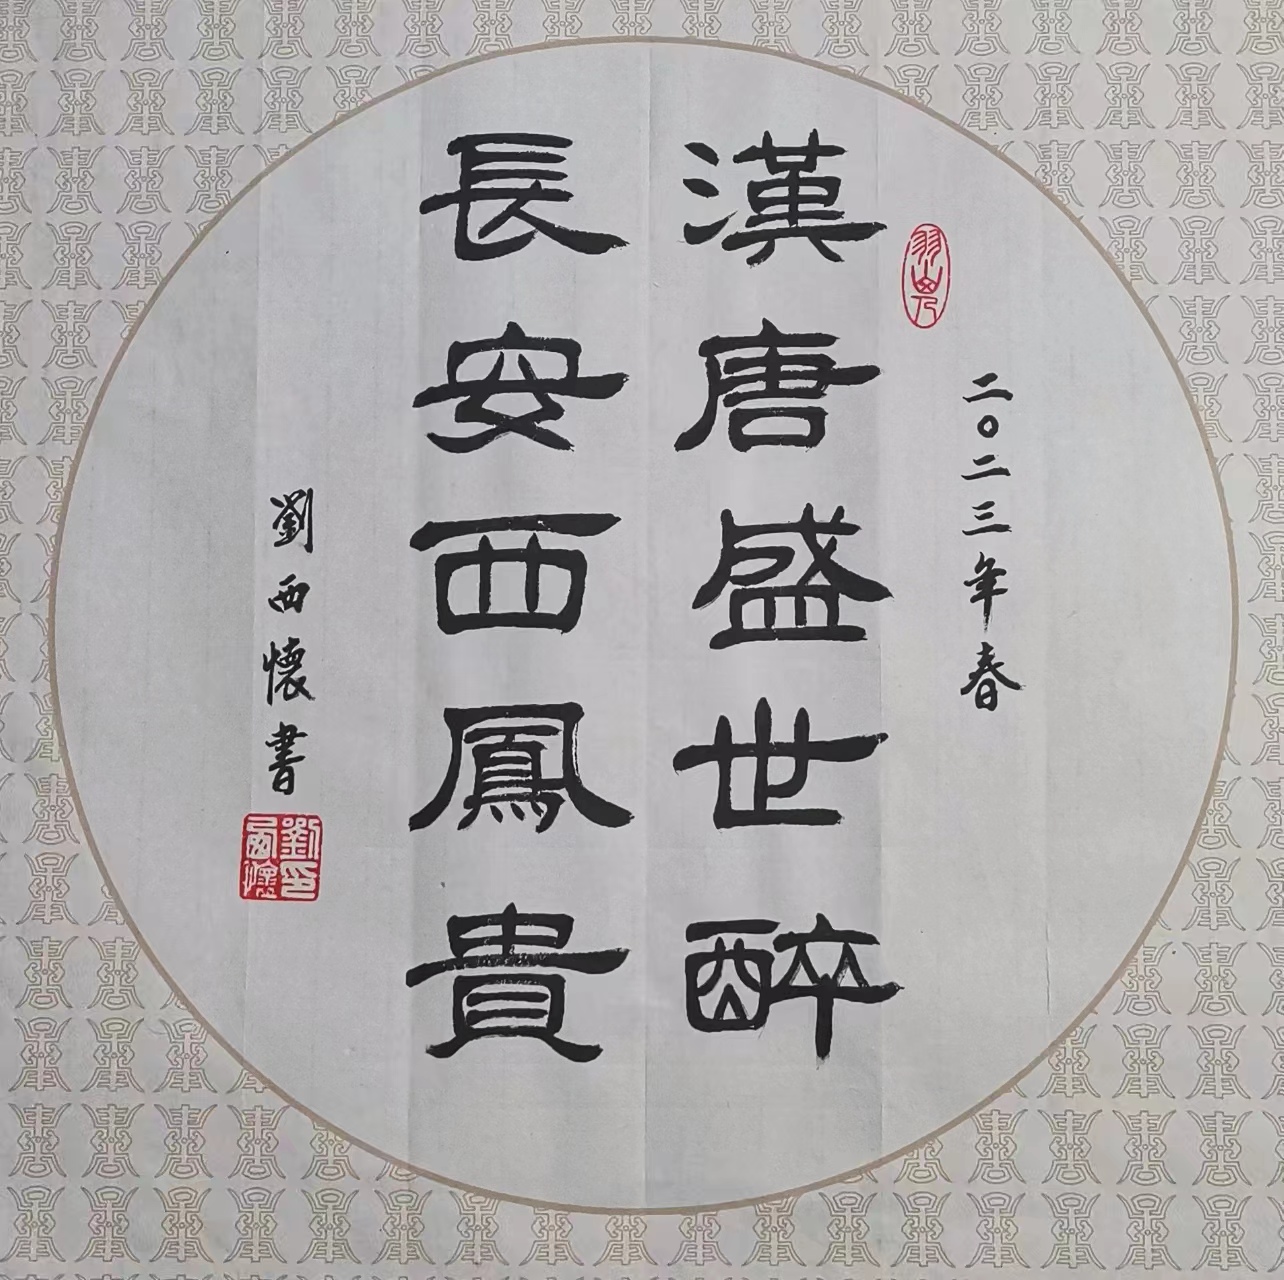 二〇二三年春
漢唐盛世醉
長安西鳳貴
劉西懷書
劉印
西懷